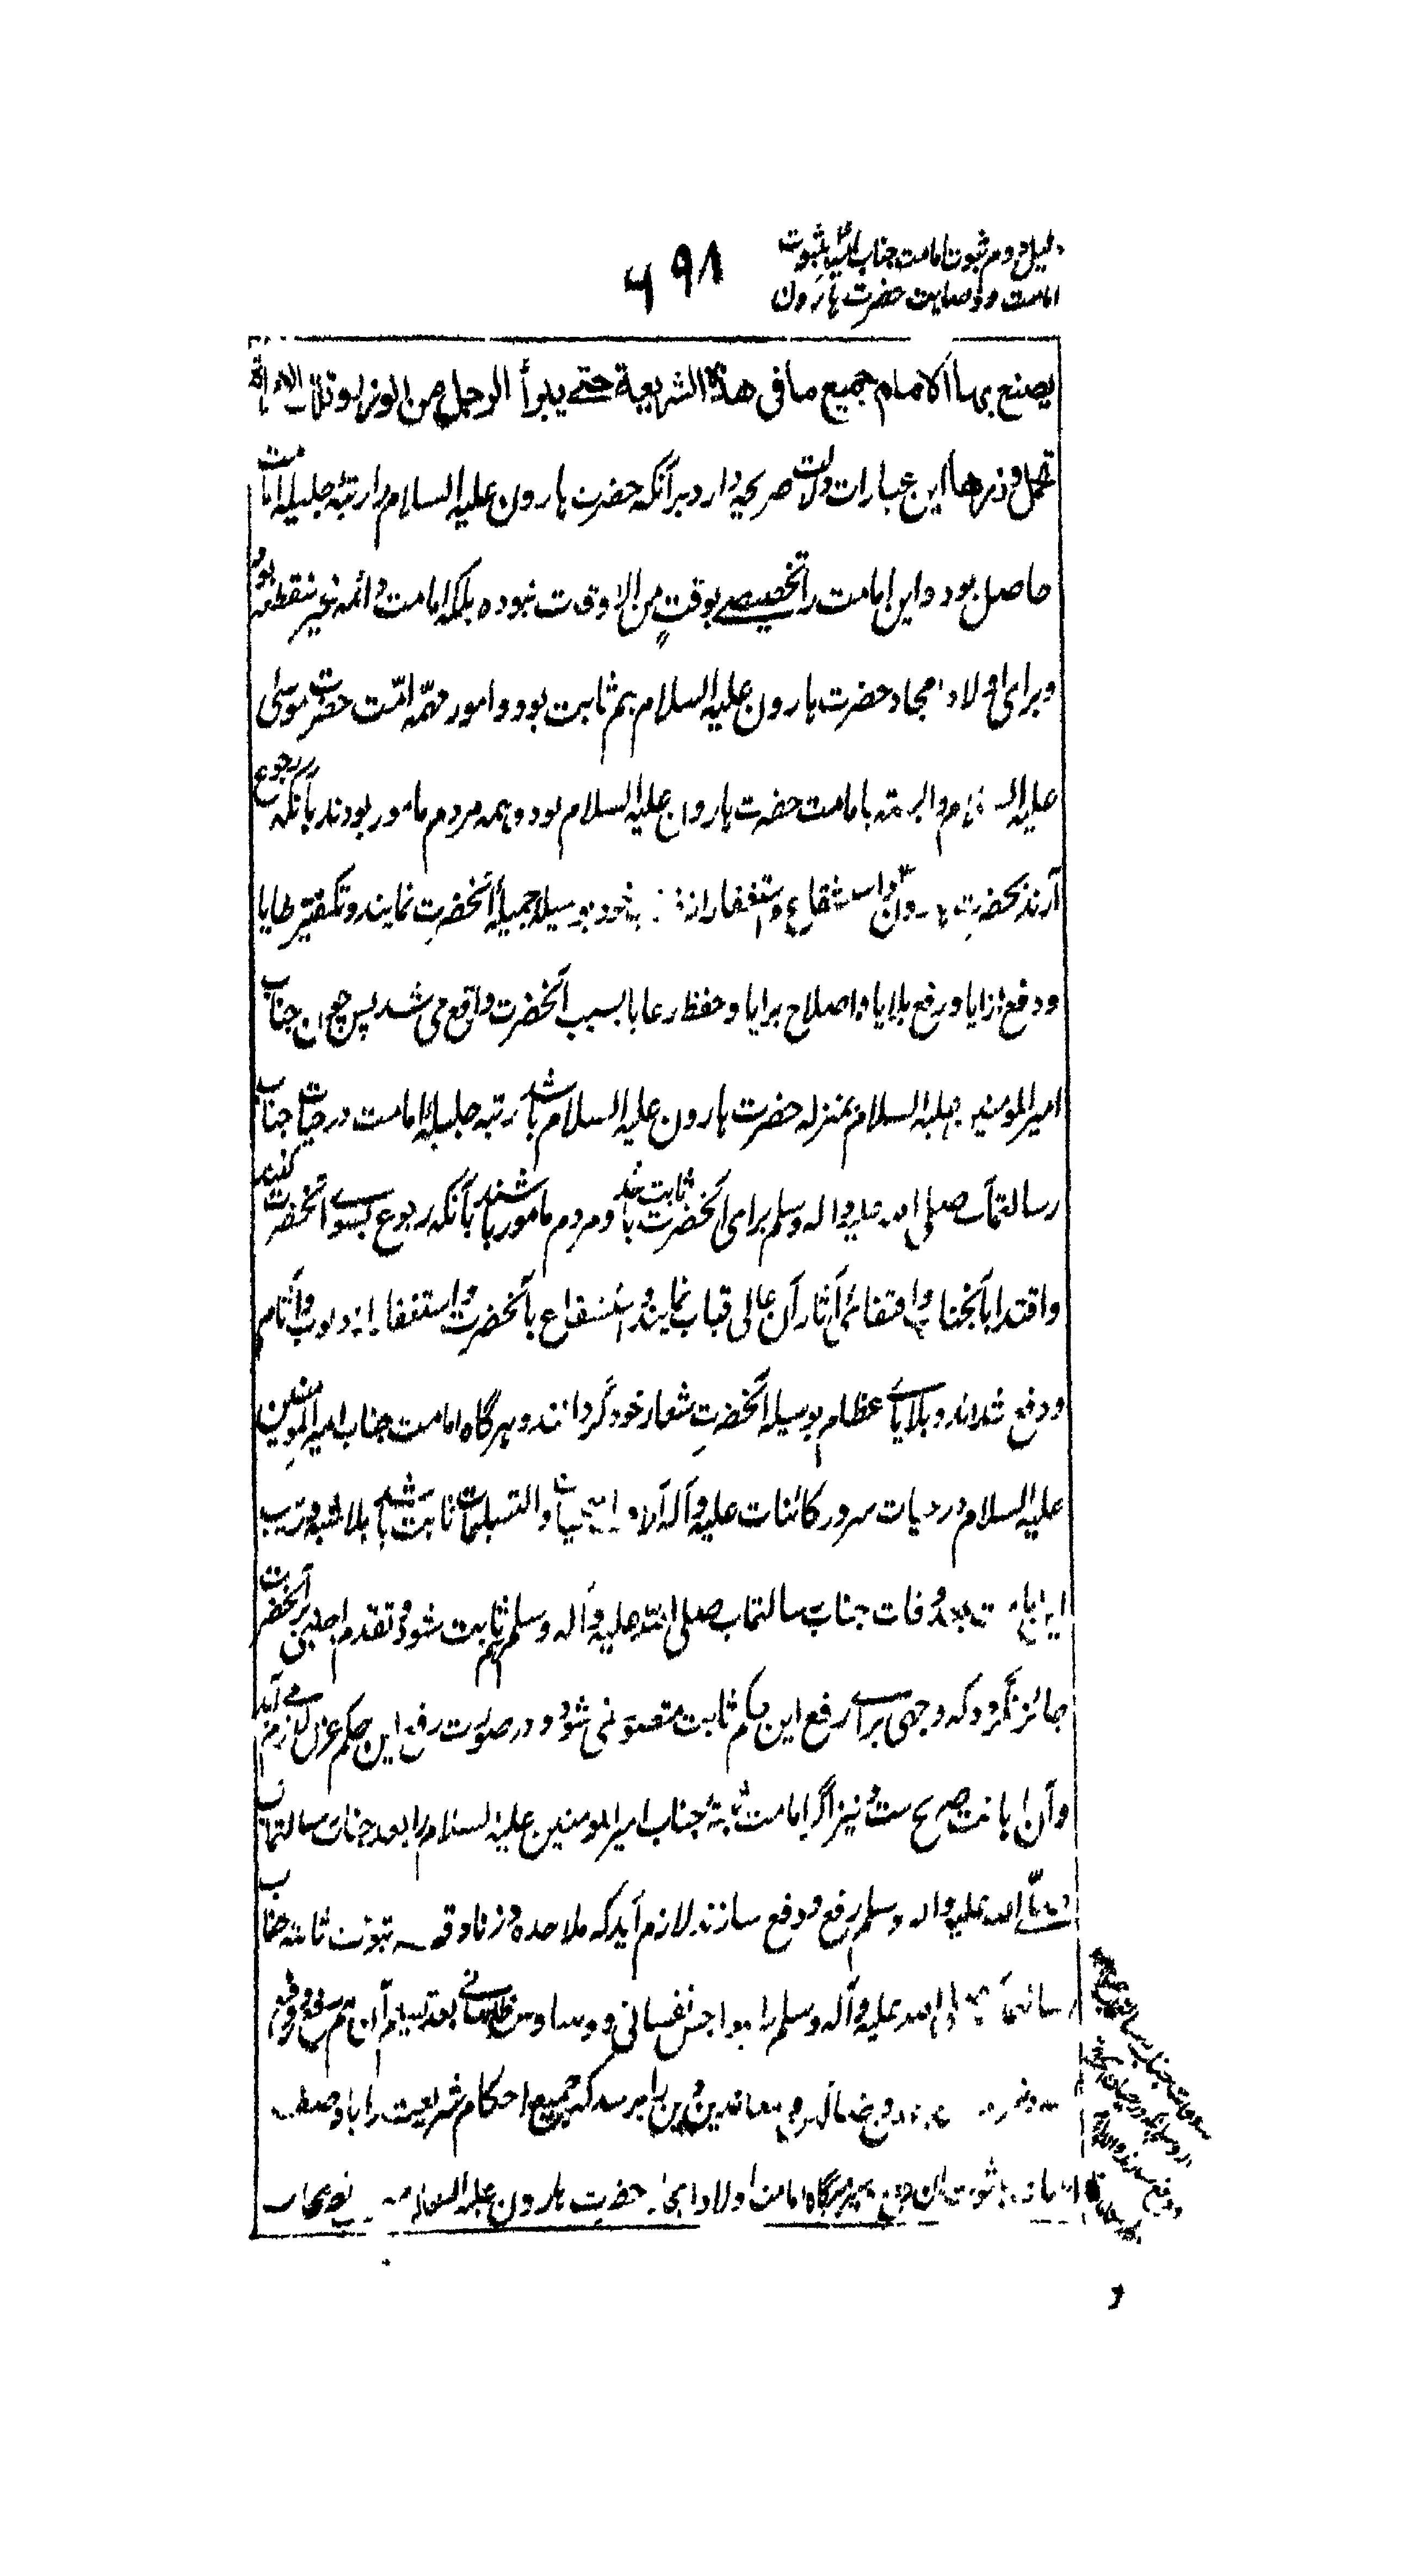 دلیل دوم ثبوت امامت جناب امیر بثبوت
امامت و وصایت حضرت هارون
۶۹۸
یصنع بها الامام جمیع ما فی هذه الشریعة حتے یبرأ الرجل من الوزر وتلك المراة
تحمل وزرها این عبارات دلالت صریحه دارد بر آنکه حضرت هارون علیه السلام را رتبهٔ جلیلهٔ امامت
حاصل بود و این امامت را تخصیصے بوقتٍ من الاوقات نبوده بلکه امامت دائمه غیر منقطعه بود
و برای اولاد امجاد حضرت هارون علیه السلام هم ثابت بود و امور مهمّهٔ امّت حضرت موسی
علیه السلام وابسته بامامت حضرت هارون علیه السلام بود و همه مردم مامور بودند بآنکه رجوع
آرند بحضرت هارون و استشفاع و استغفار از خود بوسیلهٔ جمیلهٔ آنحضرت نمایند و تکفیر خطایا
و دفع رزایا و رفع بلایا و اصلاح برایا و حفظ رعایا بسبب آنحضرت واقع می شد پس چون جناب
امیر المومنین علیه السلام بمنزله حضرت هارون علیه السلام باشد رتبه جلیلهٔ امامت در حیات جناب
رسالتمآب صلی الله علیه و اله وسلم برای آنحضرت ثابت باشد و مردم مامور باشند بآنکه رجوع بسوے آنحضرت کنند
و اقتدا بآنجناب و اقتفای آثار آن عالی قباب نمایند و استشفاع بآنحضرت و استغفار از ذنوب و آثام
و دفع شدائد و بلایاے عظام بوسیلهٔ آنحضرت شعار خود گردانند و هرگاه امامت جناب امیر المومنین
علیه السلام در حیات سرور کائنات علیه و آله آلاف التحیات والتسلیمات ثابت باشد بلا شبهه و ریب
این امامت بعد وفات جناب رسالتمآب صلی الله علیه و آله وسلم هم ثابت شود و تقدم احدی بر آنحضرت
جائز نگردد که وجهی براے رفع این حکم ثابت متصور نمی شود و در صورت رفع این حکم عزل لازم مے آید
و آن اهانت صریح ست و نیز اگر امامت ثابتهٔ جناب امیر المومنین علیه السلام را بعد جناب رسالتمآب
صلّے الله علیه و اله وسلم رفع و دفع سازند لازم آید که ملاحده و زنادقه نبوت ثابته جناب
رسالتمآب صلی الله علیه و آله وسلم را بهواجس نفسانی و وساوس ظلمانے بعد تسلیم آن هم مرفوع و مدفوع
معاندین دین را میرسد که جمیع احکام شریعت را با وصف
ثبوت آن هرگاه امامت اولاد امجاد حضرت هارون علیه السلام بعد
و